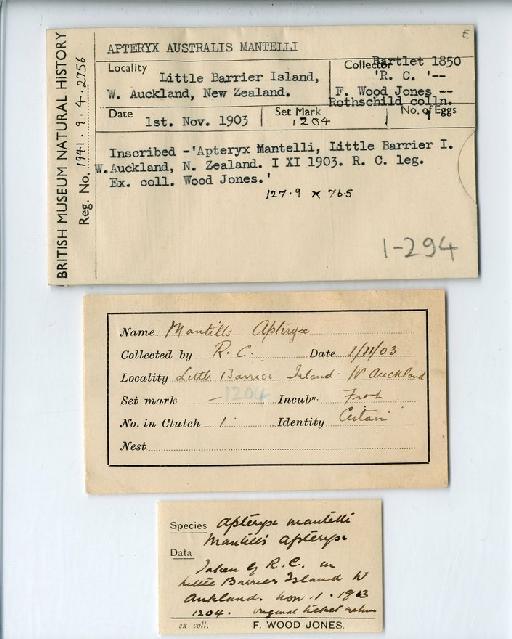 E
APTERYX AUSTRALIS MANTELLI
BRITISH MUSEUM NATURAL HISTORY
Reg. No. 1941.9.4.2756
Locality Little Barrier Island,
W. Auckland, New Zealand.
Collector Bartlet 1850
'R. C. '--
F. Wood Jones --
Rothschild colln.
Date 1st. Nov. 1903
Set Mark 1204
No. of Eggs
Inscribed -'Apteryx Mantelli, Little Barrier I.
W.Auckland, N. Zealand. I XI 1903. R. C. leg.
Ex. coll. Wood Jones.'
127.9 x 765
1-294
Name Mantells Apteryx
Collected by R. C. Date 1/11/03
Locality Little Barrier Island W Auckland
Set mark - 1204 Incubn.
No. in Clutch 1 Identity Certain
Nest
Species Apteryx mantelli
Mantell's Apteryx
Data
Taken by R. C. in
Little Barrier Island W
Auckland. Nov. 1. 1903
1204. original ticket
ex coll. F. WOOD JONES.